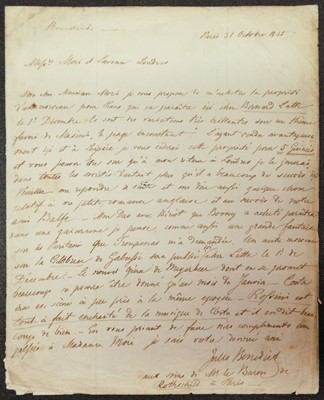 Benedict
Paris 31 Octobre 1835
Mess.rs Mori et Lavenu Londres
Mon cher Monsieur Mori je vous propose de m'acheter la propriété
d'un morceau pour Piano qui va paraître ici chez Bernard Latte
le 1.r Décembre. Ce sont des variations très brillantes sur un thème
favori de le page inconstant. L'ayant vendu avantageuse-
ment ici et à je vous céderai cette propriété pour 5 guinées
et vous pouvez être sur qu'à mon retour à Londres je le jouerai
dans toutes les soirées d'autant plus qu'il a beaucoup de succès ici
Veuillez me répondre et me dire aussi quelque chose
relatif à ma petite romance anglaise et au envoi de notre
ami Adolfe. Mon Duo avec Bériot que Boosey a acheté paraîtra
dans une quinzaine je pense, comme aussi une grande fantaisie
sur les Puritains que Troupenas m'a demandée. Un autre morceau
sur la de sera publié chez Latte le 15 de
Décembre. Le nouvel opéra de Meyerbeer dont on se promet
beaucoup va paraître être donné qu'au mois de Janvier. Costa
chez ici à peu près à la même époque. Rossini est
tout-à-fait enchanté de la musique de Costa et il en dit beau-
coup de bien. En vous priant de faire mes complimens
à Madame Mori je suis votre dévoué ami
Jules Benedict
aux soins de Mr le Baron de
Rothschild à Paris